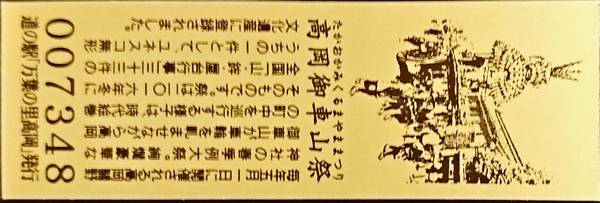 たかおかみくるまやままつり
高岡御車山祭
毎年五月一日に開催される高岡關野
神社の春季例大祭。絢爛豪華な
御車山が車輪を軋ませながら高岡
の町中を巡行する様子は、時代絵巻
そのものです。祭は二〇一六年冬に
全国「山・鉾・屋台行事」三十三件の
うちの一件として、ユネスコ無形
文化遺産に登録されました。
007348
道の駅「万葉の里高岡」発行